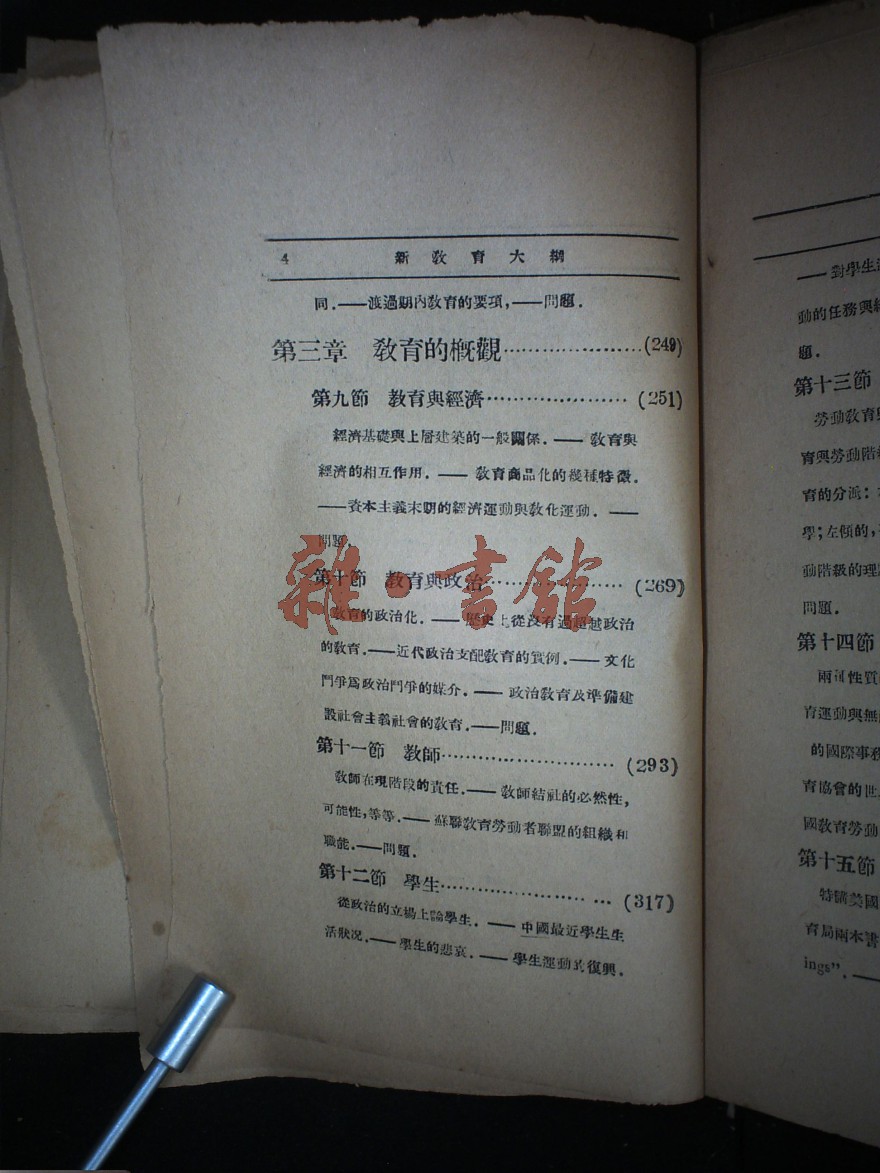 4 新教育大綱
同．——渡過期内教育的要項，——問題．
第三章 教育的概觀……………………(249)
第九節 教育與經濟…………………(251)
經濟基礎與上層建築的一般關係．—— 教育與
經濟的相互作用．—— 教育商品化的幾種特徵．
——資本主義末期的經濟運動與教化運動．——
問題．
第十節 教育與政治…………………(269)
教育的政治化．——歷史上從沒有過超越政治
的教育．——近代政治支配教育的實例．—— 文化
鬥爭爲政治鬥爭的媒介．—— 政治教育及準備建
設社會主義社會的教育．——問題．
第十一節 教師………………………(293)
教師在現階段的責任．—— 教師結社的必然性，
可能性，等等．—— 蘇聯教育勞動者聯盟的組織和
職能．——問題．
第十二節 學生………………………(317)
從政治的立場上論學生．—— 中國最近學生生
活狀况．——學生的悲哀．—— 學生運動的復興．
雜·書館
——對學生
動的任務與
題．
第十三節
勞動教育
育與勞動階
育的分派：
學；左傾的，
動階級的理
問題．
第十四節
性質
育運動與無
的國際事務
育協會的世
國教育勞動
第十五節
特購美國
育局兩本書
ings"．——